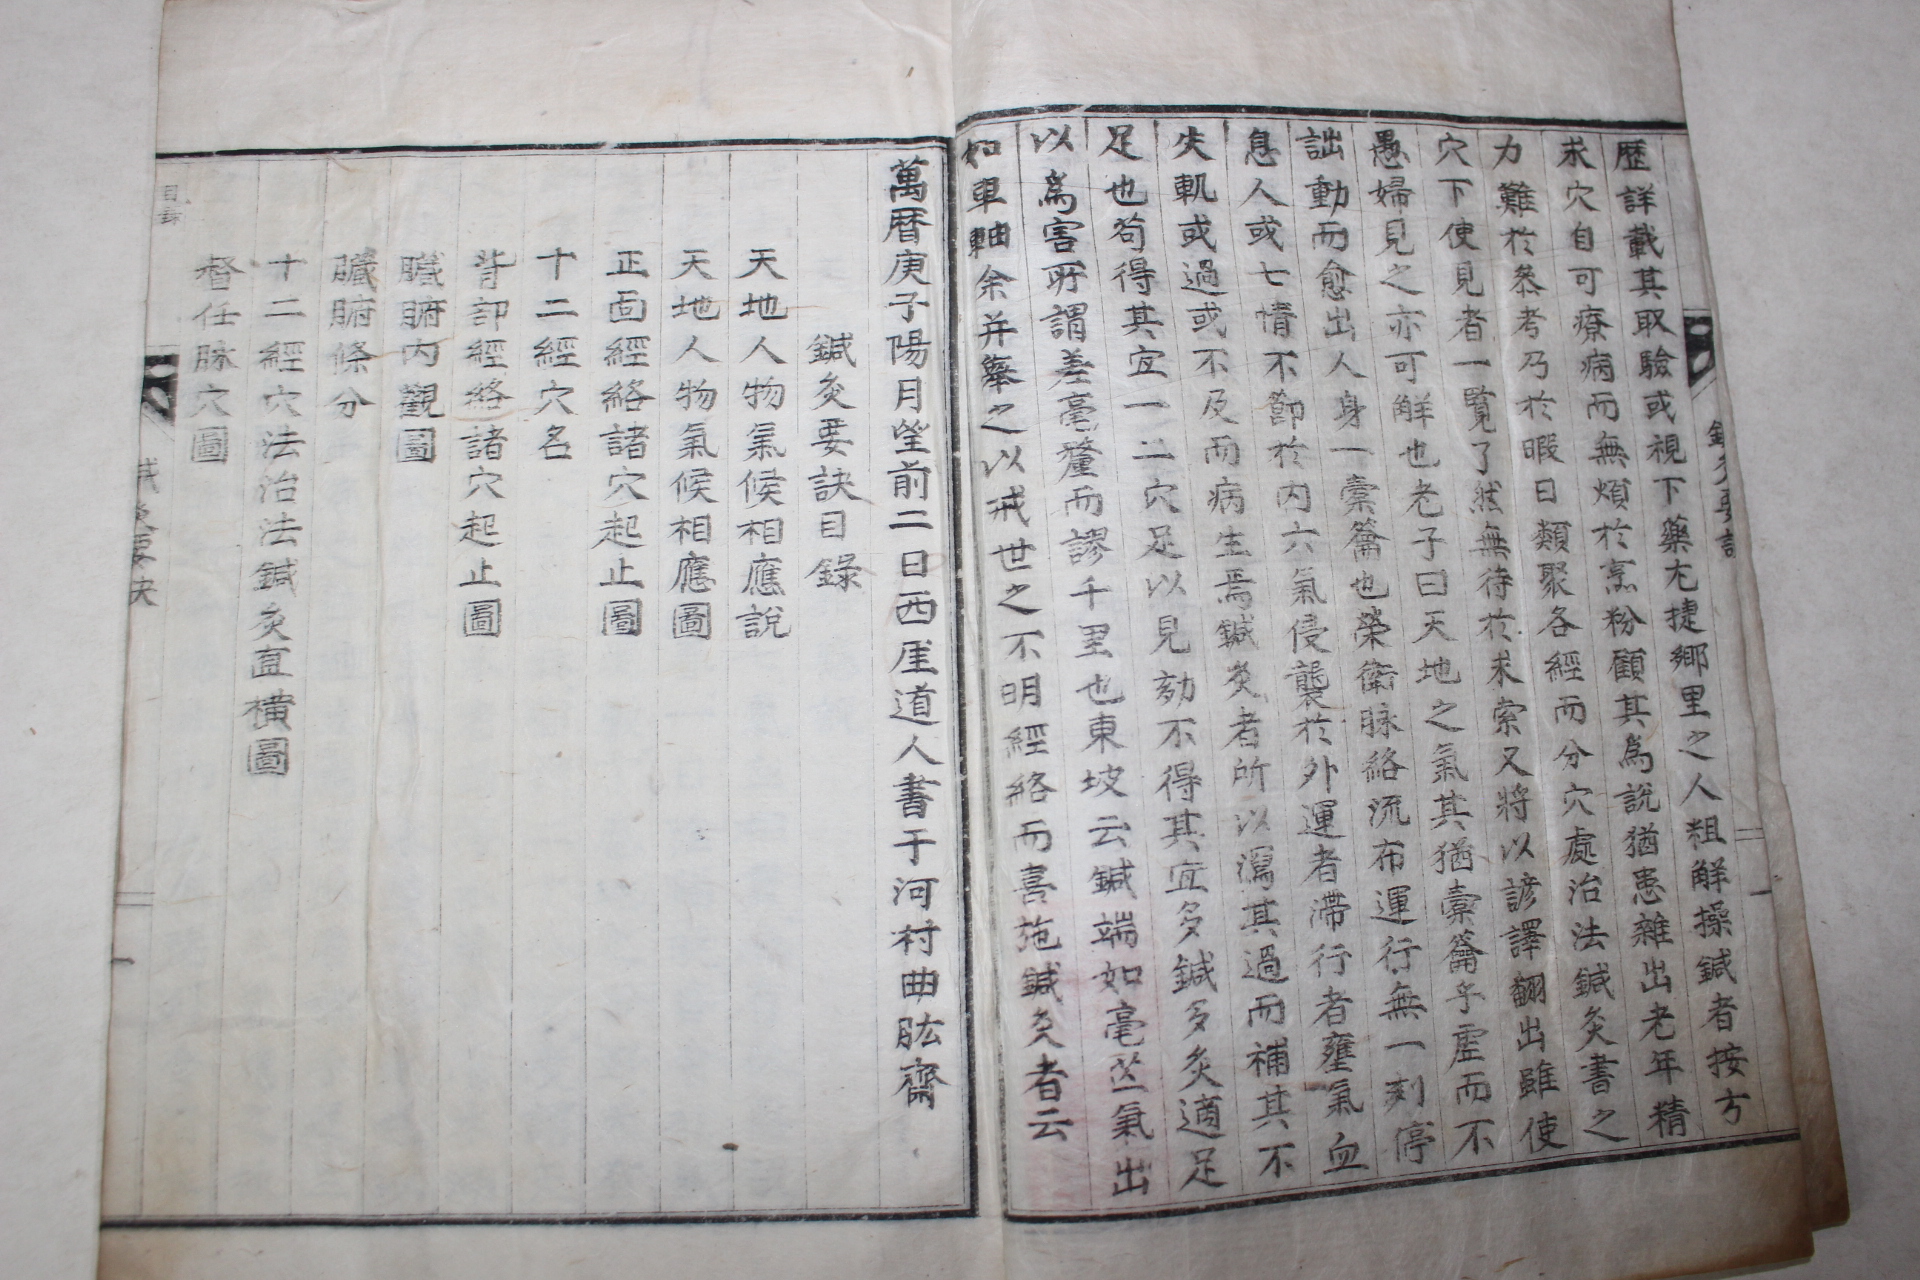 歷詳載其取驗或視下藥尢捷鄉里之人粗解操鍼者按方
求穴自可療病而無煩於烹粉顧其爲說猶患雜出老年精
力難於叅考乃於暇日類聚各經而分穴處治法鍼灸書之
穴下使見者一覽了然無待於求索又將以諺譯翻出雖使
愚婦見之亦可解也老子曰天地之氣其猶橐籥乎虛而不
詘動而愈出人身一橐籥也榮衛脉絡流布運行無一刻停
息人或七情不節於內六氣侵襲於外運者滯行者壅氣血
失軌或過或不及而病生焉鍼灸者所以瀉其過而補其不
足也苟得其宜一二穴足以見効不得其宜多鍼多灸適足
以爲害所謂差毫釐而謬千里也東坡云鍼端如毫芒氣出
如車軸余并擧之以戒世之不明經絡而喜施鍼灸者云
萬曆庚子陽月望前二日西厓道人書于河村曲肱齋
鍼灸要訣目錄
天地人物氣候相應說
天地人物氣候相應圖
正面經絡諸穴起止圖
十二經穴名
背部經絡諸穴起止圖
臟腑內觀圖
臟腑條分
十二經穴法治法鍼灸直橫圖
督任脉穴圖
目錄
一